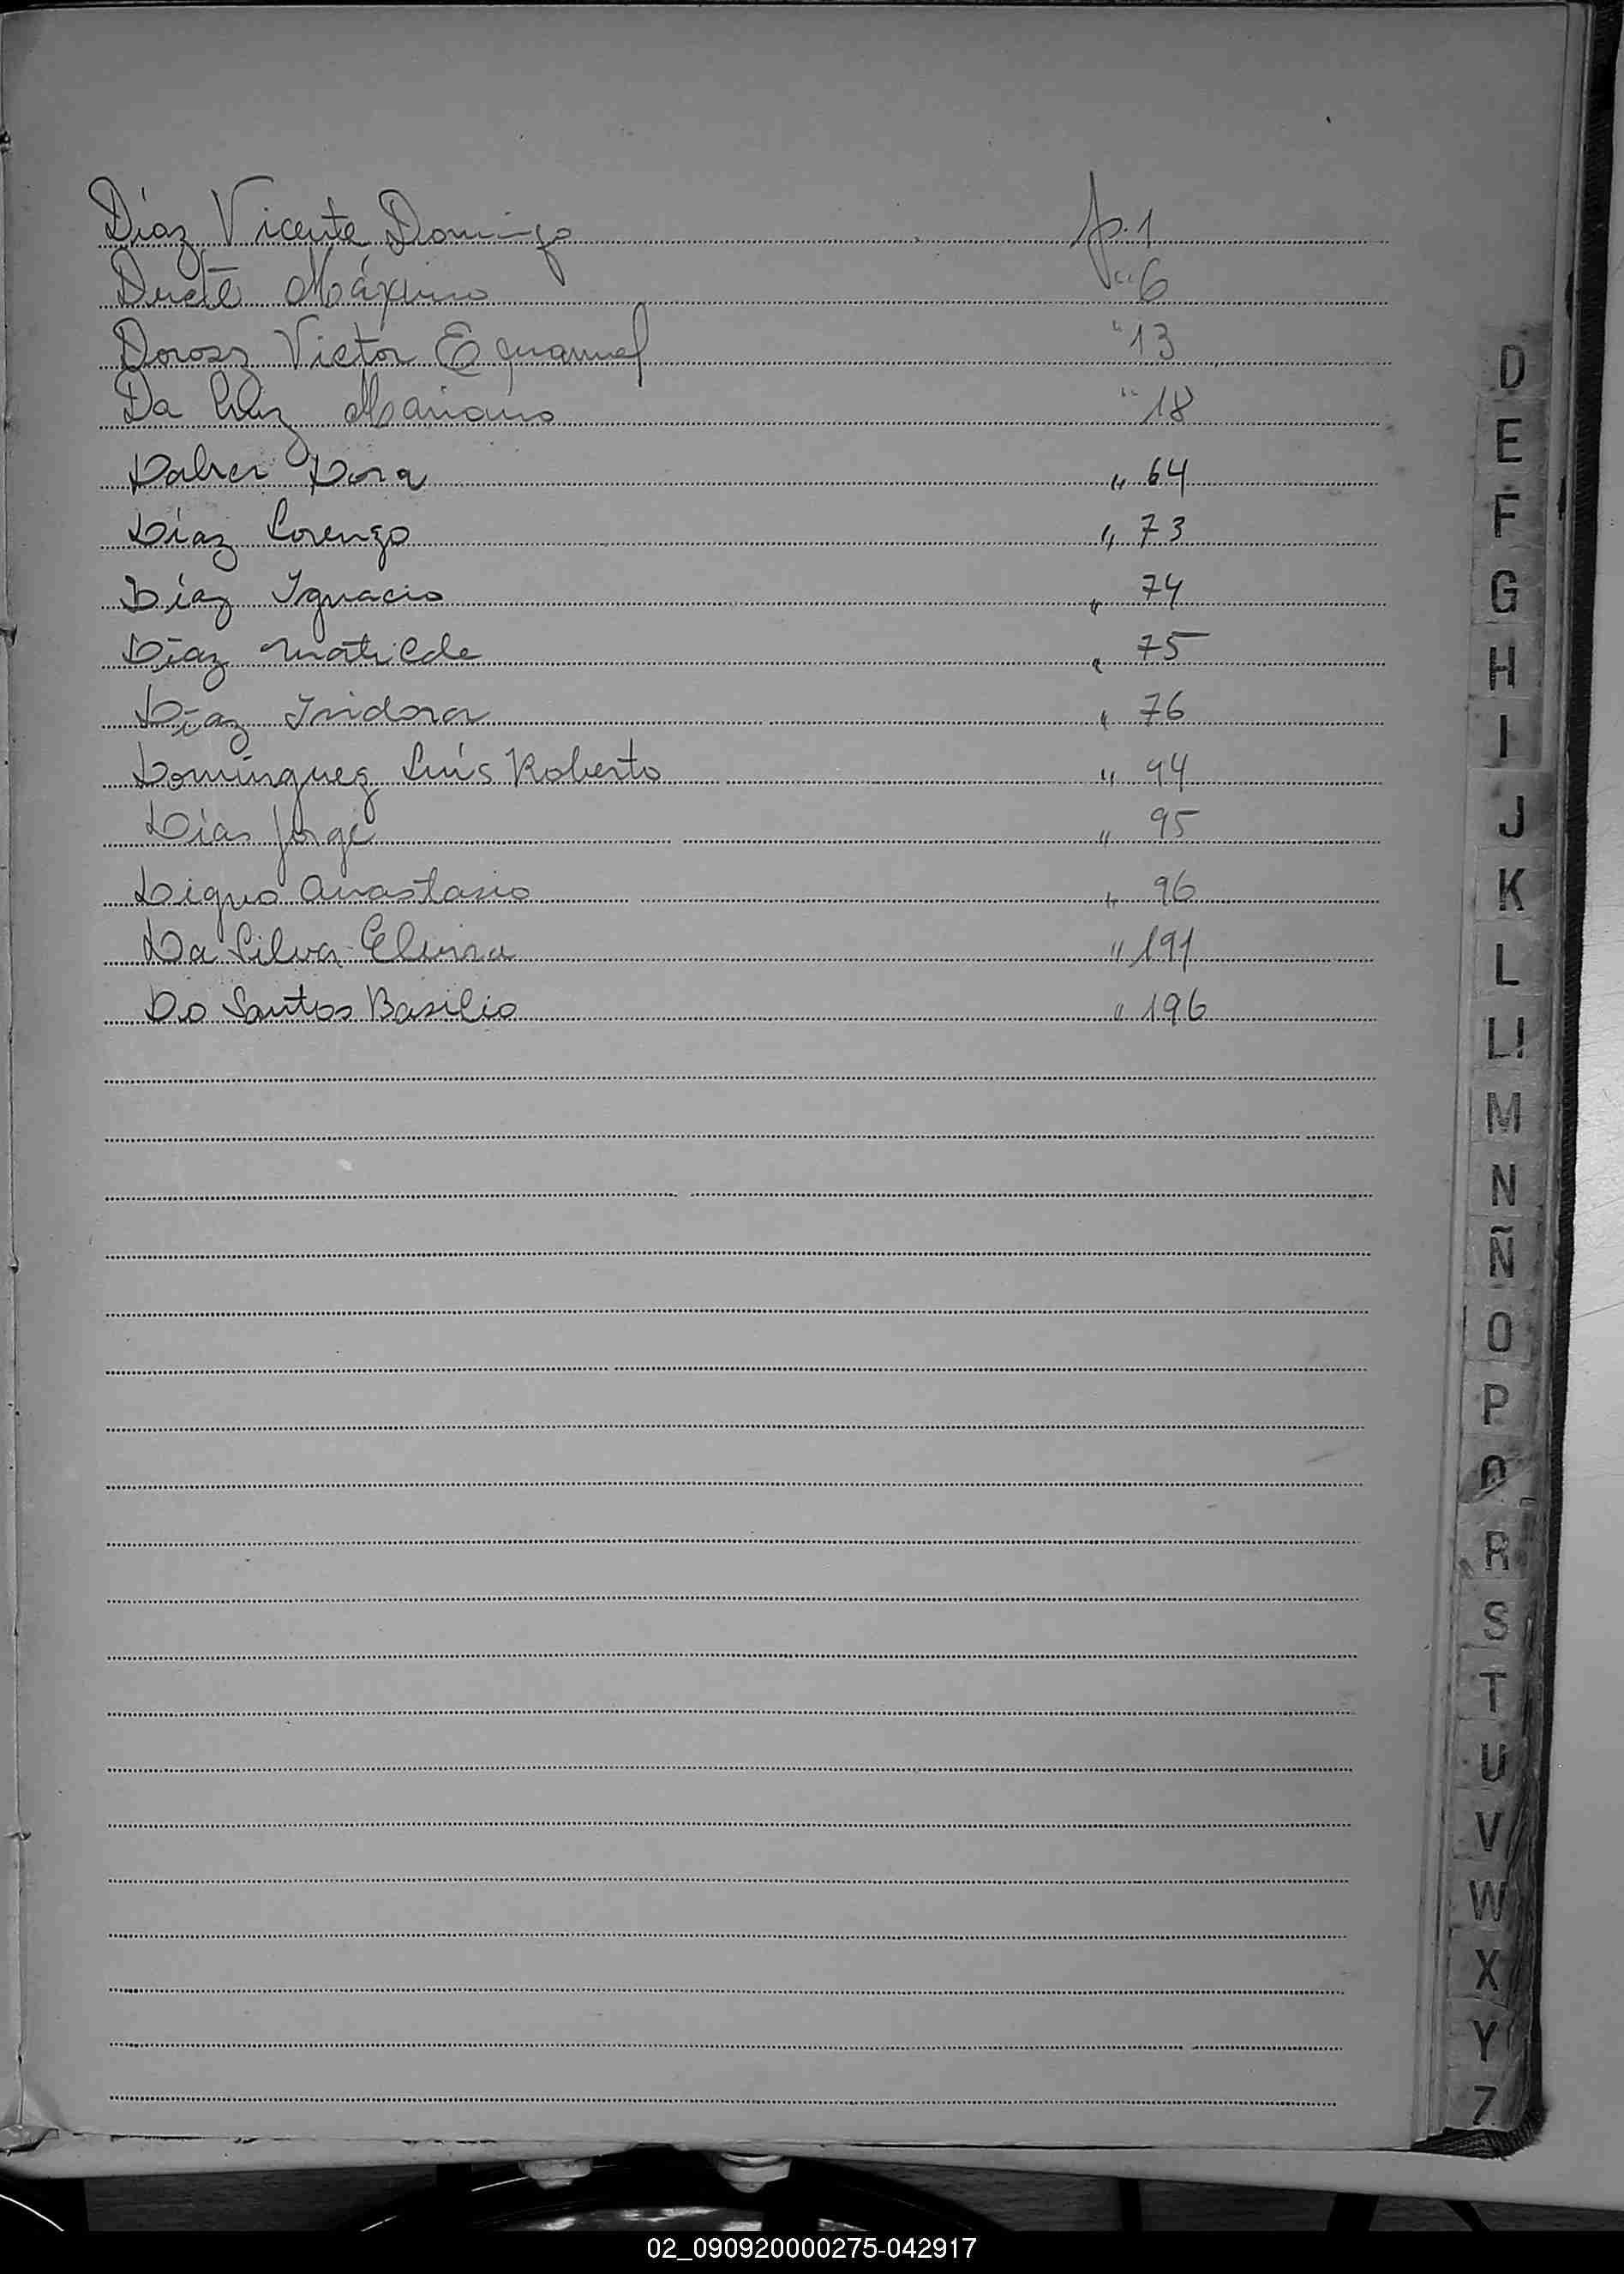 Díaz Vicente Domingo fo. 1
Máximo " 6
Dorosz Victor Emanuel " 13
Da Luz Mariano " 18
Daher Dora " 64
Díaz Lorenzo " 73
Díaz Ignacio " 74
Díaz Matilde " 75
Díaz Isidora " 76
Domínguez Luís Roberto " 94
Días Jorge " 95
Anastasio " 96
Da Silva Elvira " 191
Do Santos Basilio " 196
D
E
F
G
H
I
J
K
L
LL
M
N
Ñ
O
P
Q
R
S
T
U
V
W
X
Y
Z
02_090920000275-042917